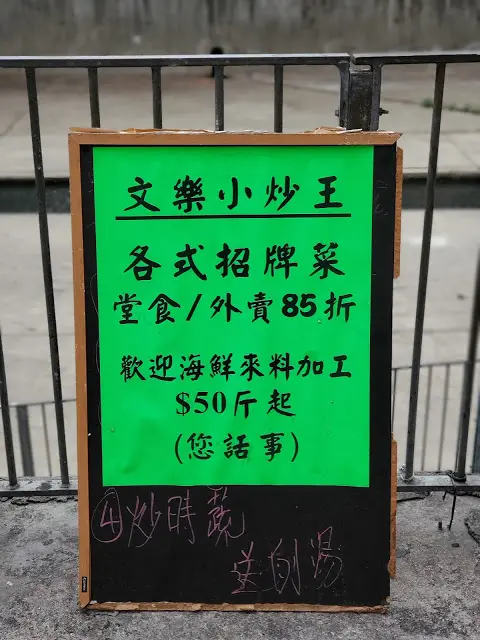 文樂小炒王
各式招牌菜
堂食/外賣85折
歡迎海鮮來料加工
$50斤起
(您話事)
④炒時蔬
送例湯